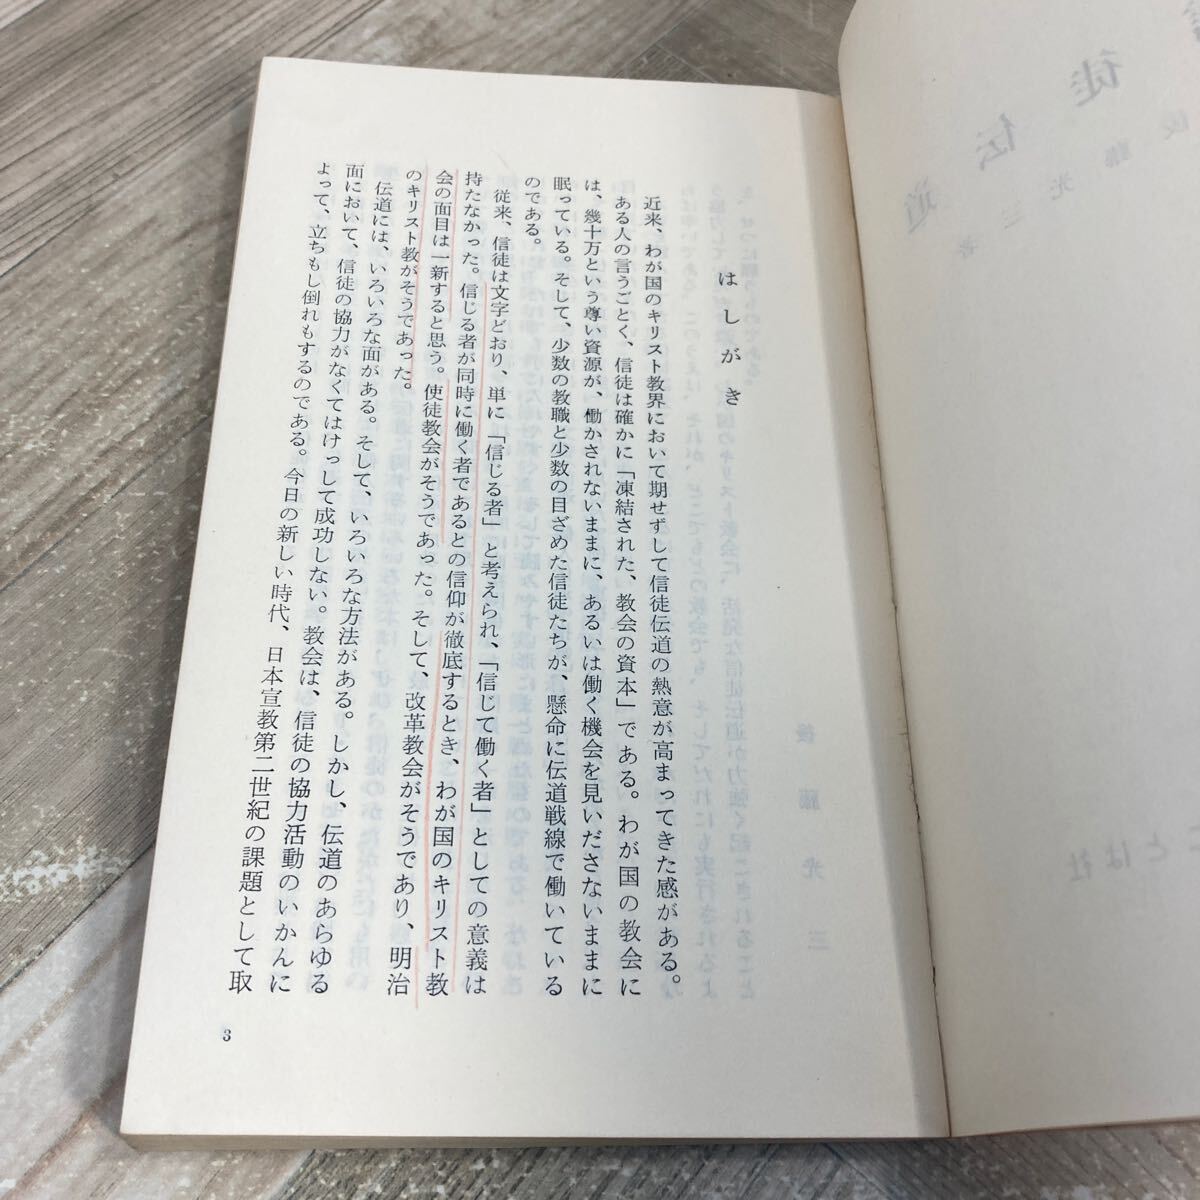 はしがき
近来、わが国のキリスト教界において期せずして信徒伝道の熱意が高まってきた感がある。
ある人の言うごとく、信徒は確かに「凍結された、教会の資本」である。わが国の教会に
は、幾十万という尊い資源が、働かされないままに、あるいは働く機会を見いださないままに
眠っている。そして、少数の教職と少数の目ざめた信徒たちが、懸命に伝道戦線で働いている
のである。
従来、信徒は文字どおり、単に「信じる者」と考えられ、「信じて働く者」としての意義は
持たなかった。信じる者が同時に働く者であるとの信仰が徹底するとき、わが国のキリスト教
会の面目は一新すると思う。使徒教会がそうであった。そして、改革教会がそうであり、明治
のキリスト教がそうであった。
伝道には、いろいろな面がある。そして、いろいろな方法がある。しかし、伝道のあらゆる
面において、信徒の協力がなくてはけっして成功しない。教会は、信徒の協力活動のいかんに
よって、立ちもし倒れもするのである。今日の新しい時代、日本宣教第二世紀の課題として取
3